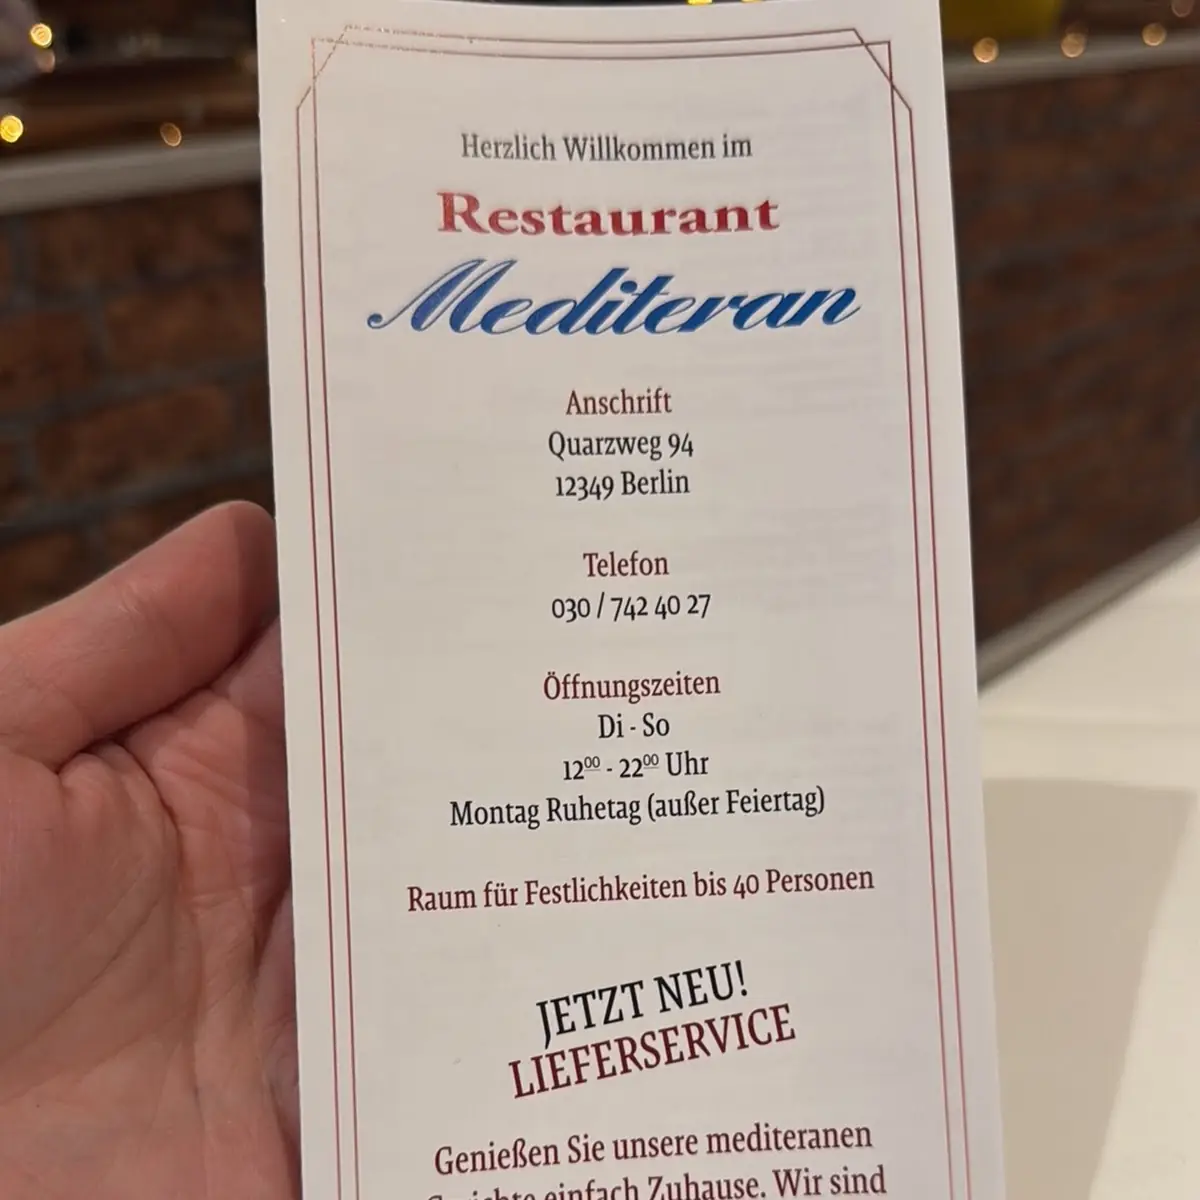 Herzlich Willkommen im
Restaurant
Mediteran
Anschrift
Quarzweg 94
12349 Berlin
Telefon
030 / 742 40 27
Öffnungszeiten
Di - So
12⁰⁰ - 22⁰⁰ Uhr
Montag Ruhetag (außer Feiertag)
Raum für Festlichkeiten bis 40 Personen
JETZT NEU!
LIEFERSERVICE
Genießen Sie unsere mediteranen
einfach Zuhause. Wir sind